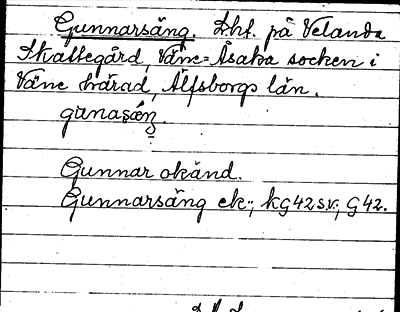 Gunnarsäng. Lht. på Velanda
Skattegård, Väne=Åsaka socken i
Väne härad, Älfsborgs län.
gunasäŋ.
Gunnar okänd.
Gunnarsäng ek.; kG42sv.; G42.